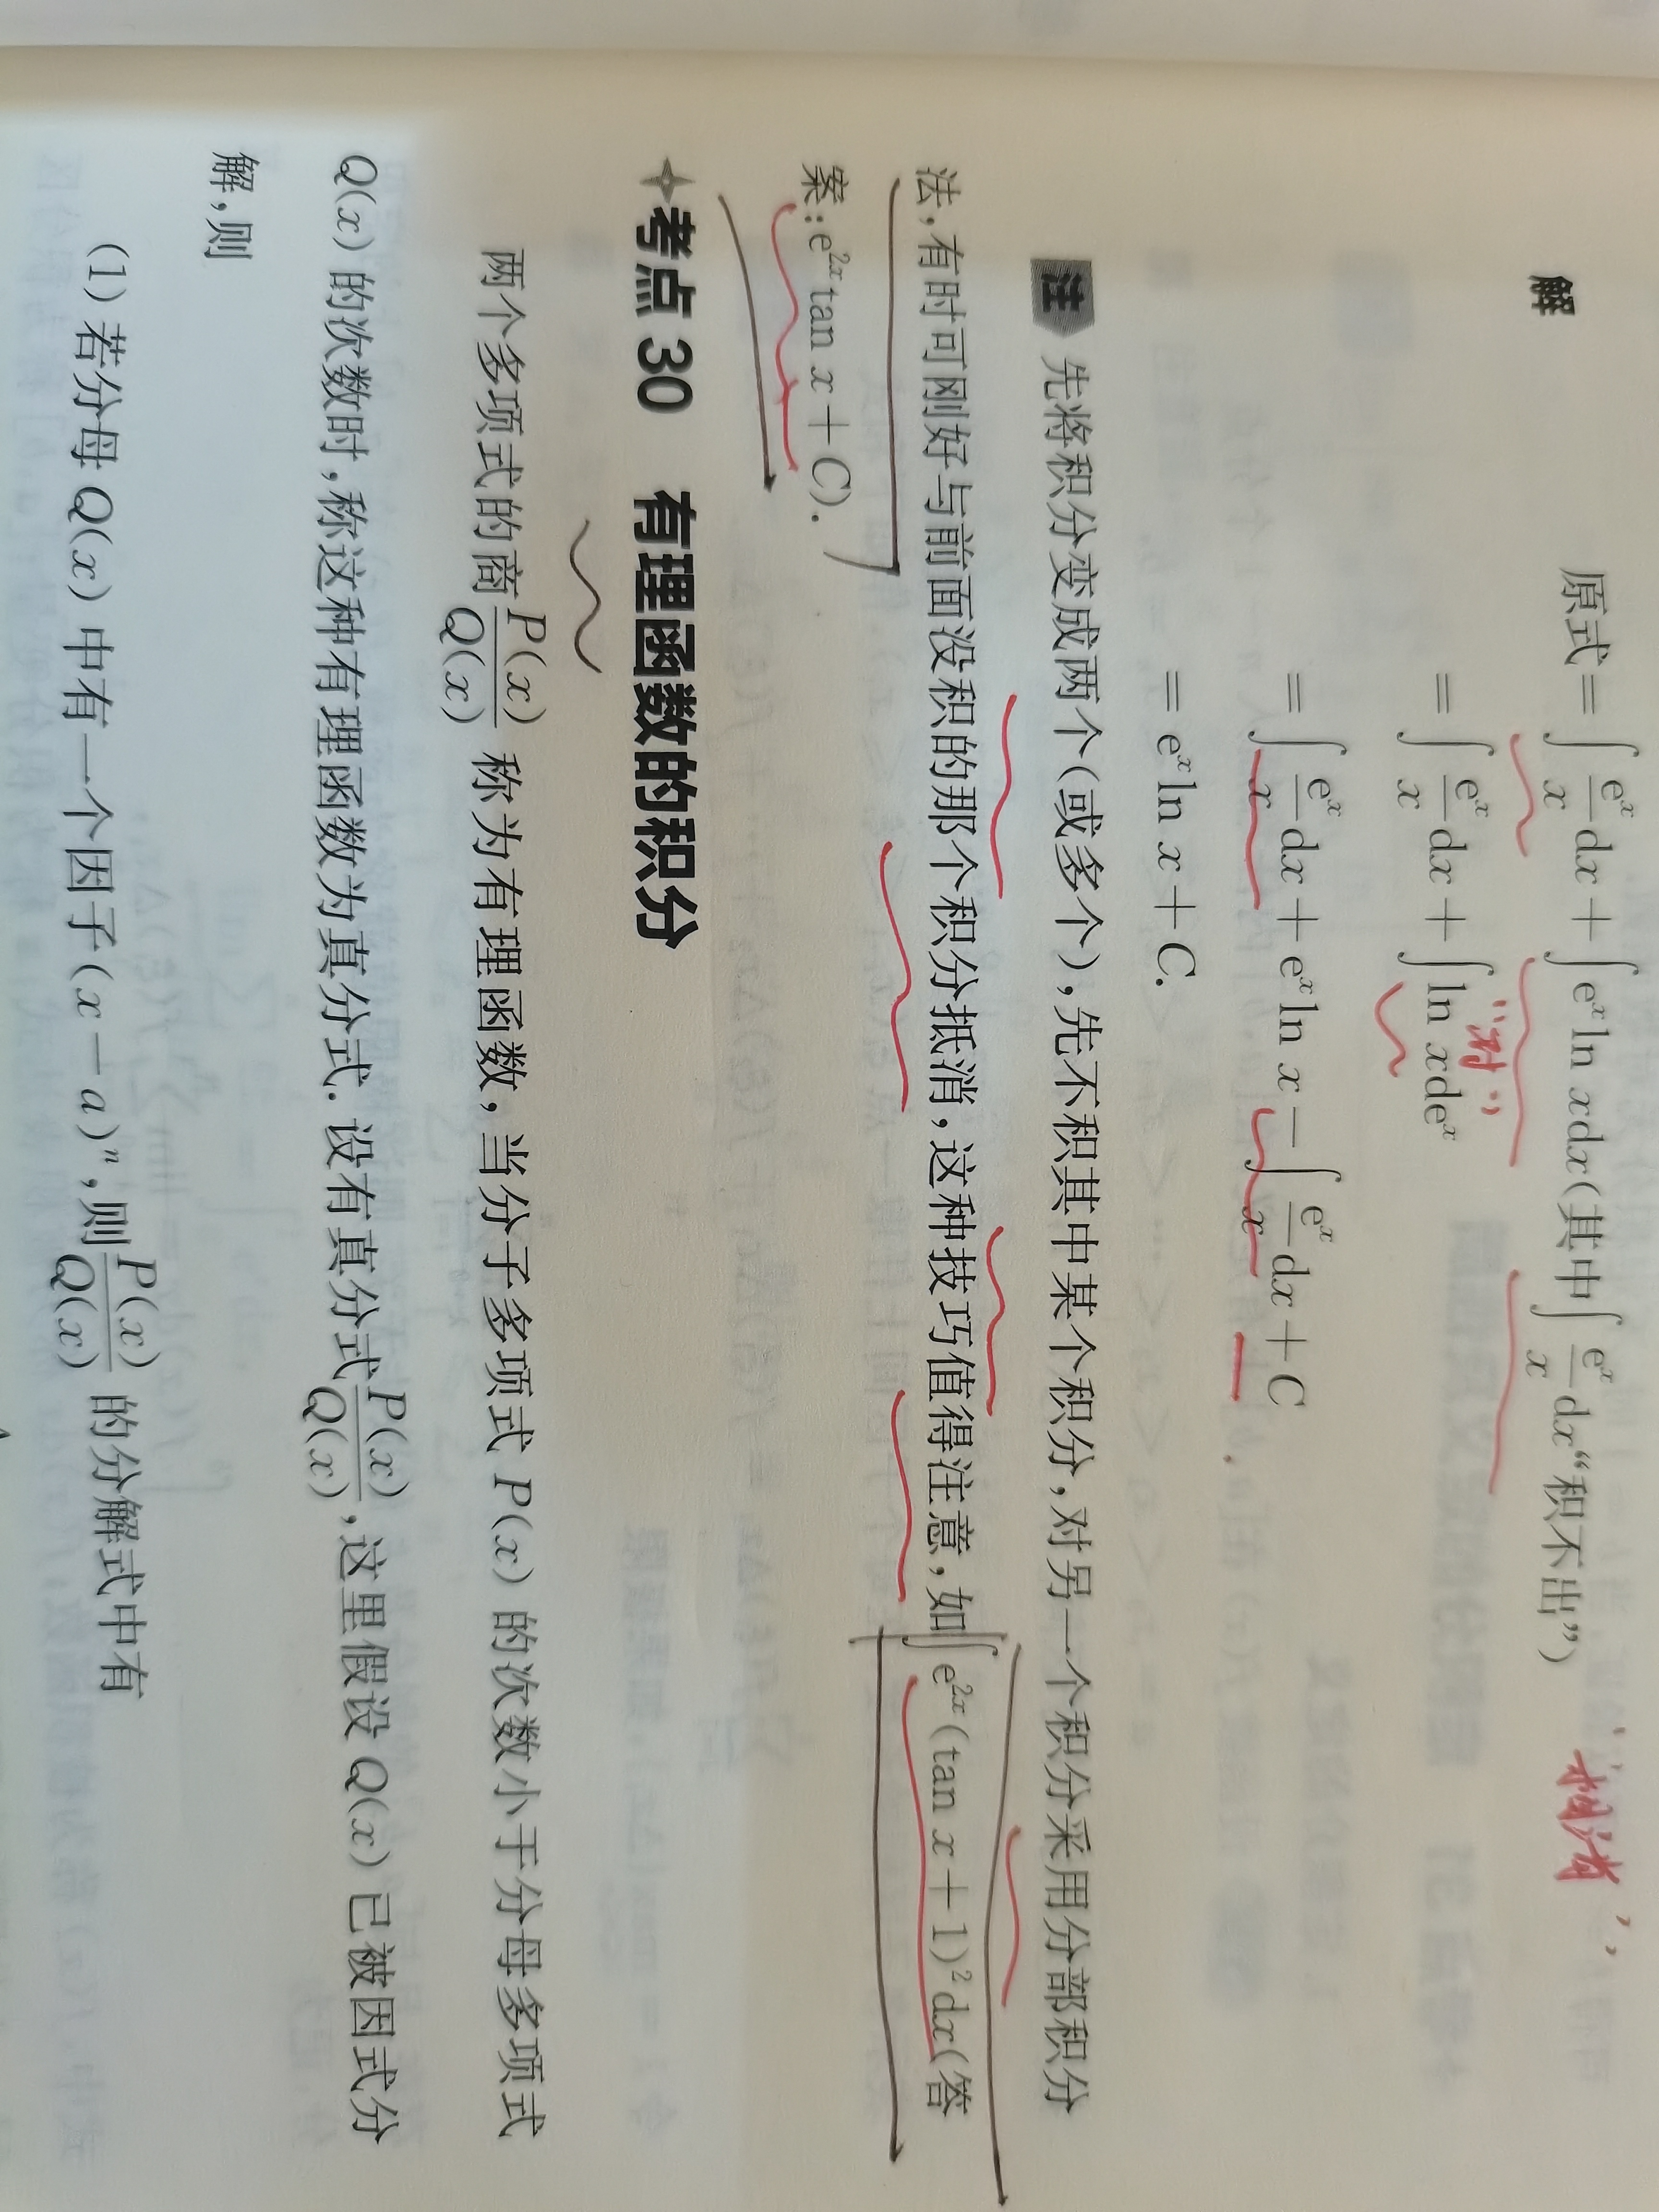 解 原式 = ∫ eˣ/x dx + ∫ eˣ ln x dx (其中 ∫ eˣ/x dx“积不出”) “抵消”
= ∫ eˣ/x dx + ∫ ln x deˣ “对”
= ∫ eˣ/x dx + eˣ ln x − ∫ eˣ/x dx + C
= eˣ ln x + C.
注 先将积分变成两个(或多个),先不积其中某个积分,对另一个积分采用分部积分
法,有时可刚好与前面没积的那个积分抵消,这种技巧值得注意,如 ∫ e²ˣ(tan x+1)² dx(答
案:e²ˣ tan x+C).
考点 30 有理函数的积分
两个多项式的商 P(x)/Q(x) 称为有理函数,当分子多项式 P(x) 的次数小于分母多项式
Q(x) 的次数时,称这种有理函数为真分式. 设有真分式 P(x)/Q(x),这里假设 Q(x) 已被因式分
解,则
(1) 若分母 Q(x) 中有一个因子 (x−a)ⁿ,则 P(x)/Q(x) 的分解式中有